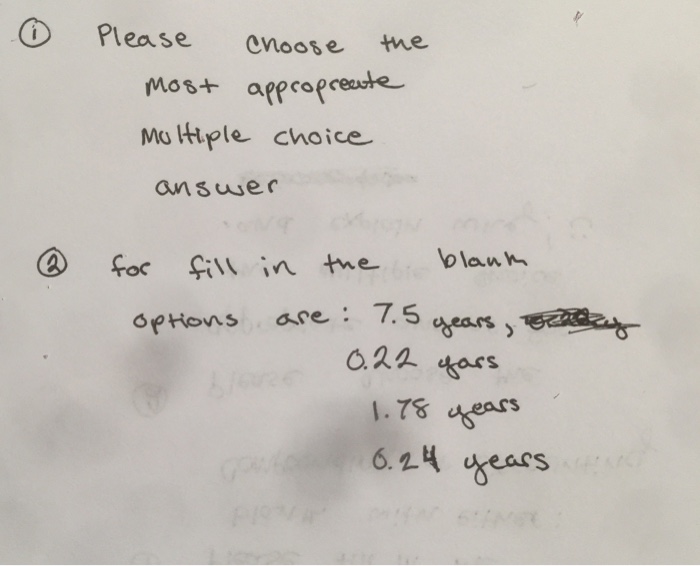 ① Please choose the
most appropreate
Multiple choice
answer
② for fill in the blank
options are: 7.5 years,
0.22 yars
1.78 years
0.24 years